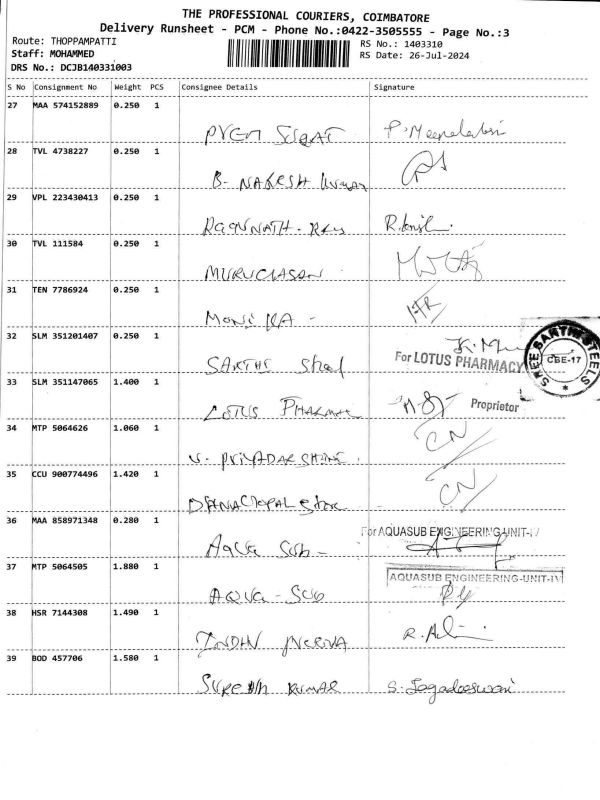 THE PROFESSIONAL COURIERS, COIMBATORE
Delivery Runsheet - PCM - Phone No.:0422-3505555 - Page No.:3
Route: THOPPAMPATTI RS No.: 1403310
Staff: MOHAMMED RS Date: 26-Jul-2024
DRS No.: DCJB140331003
S No Consignment No Weight PCS Consignee Details Signature
27 MAA 574152889 0.250 1
P. Meenalatsni
28 TVL 4738227 0.250 1
B. NAKESH kumar
29 VPL 223430413 0.250 1
30 TVL 111584 0.250 1
MURUGASAN
31 TEN 7786924 0.250 1
MONIKA -
32 SLM 351201407 0.250 1
SAKTHI Steel
For LOTUS PHARMACY
SREE SAKTHI STEELS
CBE-17
33 SLM 351147065 1.400 1
LOTUS PHARMAC
Proprietor
34 MTP 5064626 1.060 1
V. PRIYADARSHINI
CN
35 CCU 900774496 1.420 1
DHANAGOPAL Store
CN
36 MAA 858971348 0.280 1
Aqua Sub -
For AQUASUB ENGINEERING-UNIT-IV
37 MTP 5064505 1.880 1
AQUA - Sub
AQUASUB ENGINEERING-UNIT-IV
38 HSR 7144308 1.490 1
39 BOD 457706 1.580 1
SURESH KUMAR S. Jagadeeswari